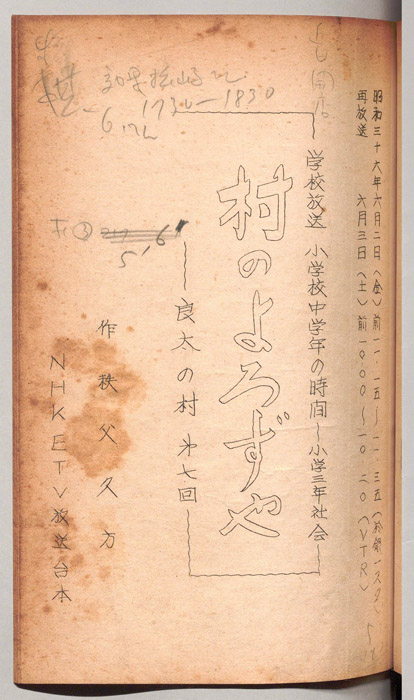 昭和三十六年六月二日(金)前一一.一五〜一一.三五
再放送 六月三日(土)前一〇.〇〇〜一〇.二〇(VTR)
学校放送 小学校中学年の時間〜小学三年社会〜
村のよろずや
〜良太の村 第七回〜
作 秩父久方
NHKETV放送台本
1730–1830